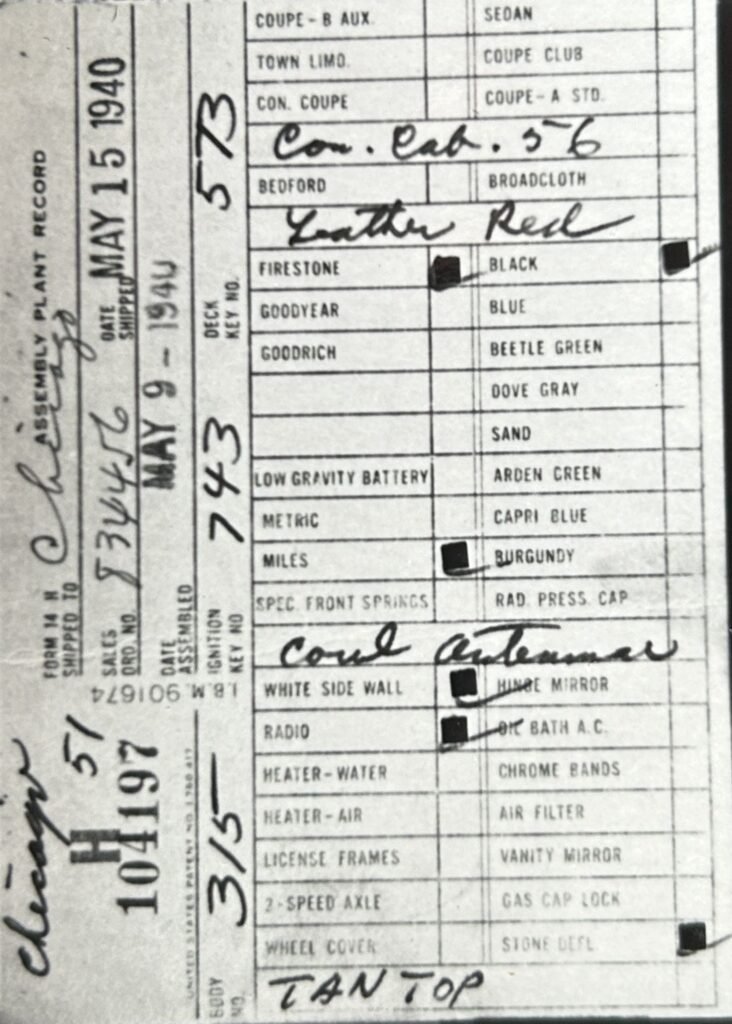 FORM 14 H ASSEMBLY PLANT RECORD
SHIPPED TO Chicago
SALES ORD. NO. 834456 DATE SHIPPED MAY 15 1940
DATE ASSEMBLED MAY 9 - 1940
IGNITION KEY NO 743 DECK KEY NO. 573
Chicago
51
H
104197
I.B.M. 901674
UNITED STATES PATENT NO. 1,780,417
BODY NO. 315
COUPE - B AUX. SEDAN
TOWN LIMO. COUPE CLUB
CON. COUPE COUPE - A STD.
Con. Cab. 56
BEDFORD BROADCLOTH
Leather Red
FIRESTONE BLACK
GOODYEAR BLUE
GOODRICH BEETLE GREEN
DOVE GRAY
SAND
LOW GRAVITY BATTERY ARDEN GREEN
METRIC CAPRI BLUE
MILES BURGUNDY
SPEC. FRONT SPRINGS RAD. PRESS. CAP
Cowl Antennae
WHITE SIDE WALL HINGE MIRROR
RADIO OIL BATH A.C.
HEATER - WATER CHROME BANDS
HEATER - AIR AIR FILTER
LICENSE FRAMES VANITY MIRROR
2 - SPEED AXLE GAS CAP LOCK
WHEEL COVER STONE DEFL
TAN TOP